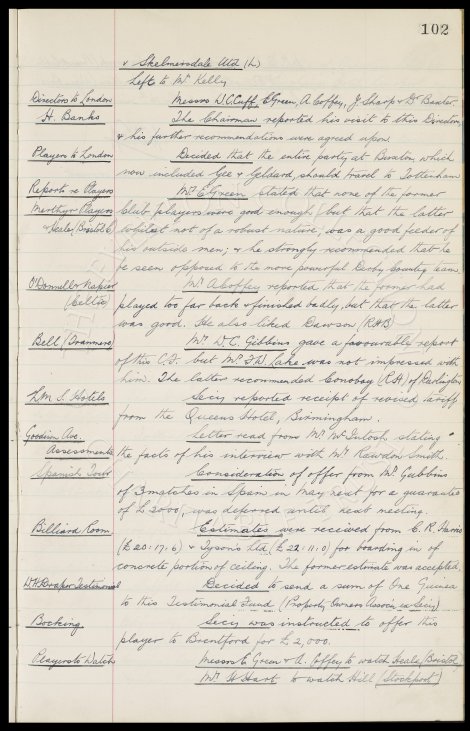 102
& Skelmersdale Utd (h)
Left to Mr Kelly
Directors to London Messrs W.C. Cuff, E. Green, A. Coffey, J. Sharp & Dr Baxter.
H. Banks The Chairman reported his visit to this Director
& his further recommendations were agreed upon.
Players to London Decided that the entire party at Buxton, which
now included Gee & Geldard, should travel to Tottenham
Reports re Players Mr E. Green stated that none of the former
Merthyr Players Club players were good enough, but that the latter
& Heale, Bristol C. whilst not of a robust nature, was a good feeder of
his outside men; & he strongly recommended that he
be seen opposed to the more powerful Derby County team.
O'Donnell & Napier Mr A. Coffey reported that the former had
(Celtic) played too far back & finished badly, but that the latter
was good. He also liked Dawson (RHB)
Bell (Tranmere) Mr W.C. Gibbins gave a favourable report
of this C.F. but Mr F.W. Lake was not impressed with
him. The latter recommended Conoboy (R.H.) of Darlington
L.M.S. Hotels Secy reported receipt of revised tariff
from the Queens Hotel, Birmingham.
Goodison Ave. Letter read from Mr McIntosh, stating
Assessments the facts of his interview with Mr Rawdon Smith.
Spanish Tour Consideration of offer from Mr Gubbins
of 3 matches in Spain in May next for a guarantee
of £2000, was deferred until next meeting.
Billiard Room Estimates were received from C. R. Harris
(£20:17:6) & Tysons Ltd (£22:11:0) for boarding in of
concrete portion of ceiling. The former estimate was accepted.
W.H. Draper Testimonial Decided to send a sum of One Guinea
to this Testimonial Fund (Property Owners Assocn ex Secy)
Bocking Secy was instructed to offer this
player to Brentford for £2,000.
Players to Watch Messrs E. Green & A. Coffey to watch Heale (Bristol)
Mr H. Hart to watch Hill (Stockport)